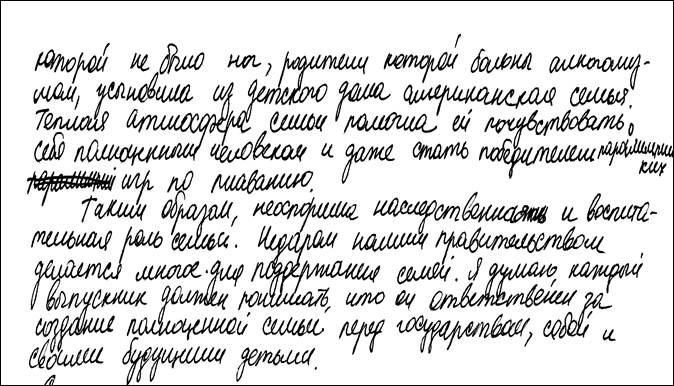 которой не было ног, родители которой больны алкоголиз-
мом, усыновила из детского дома американская семья.
Теплая атмосфера семьи помогла ей почувствовать
себя полноценным человеком и даже стать победителем паралимпийс
ких
игр по плаванию.
Таким образом, неоспорима наследственность и воспита-
тельная роль семьи. Недаром нашим правительством
делается многое для поддержания семей. Я думаю, каждый
выпускник должен понимать, что он ответственен за
создание полноценной семьи перед государством, собой и
своими будущими детьми.